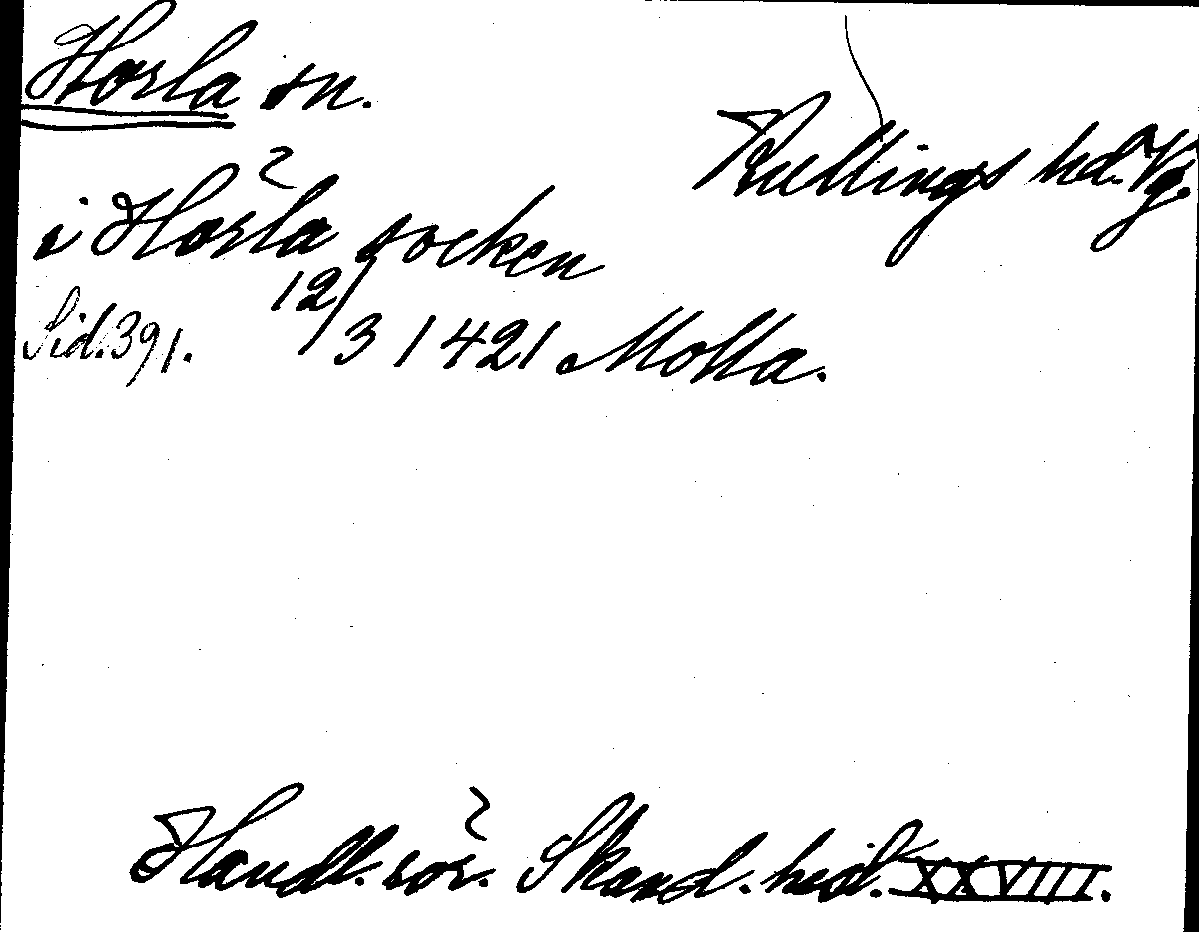 Horla sn.
Kullings hd. Vg.
i Hörla socken
Sid. 391. 12/3 1421 Molla.
Handl. rör. Skand. hist. XXVIII.